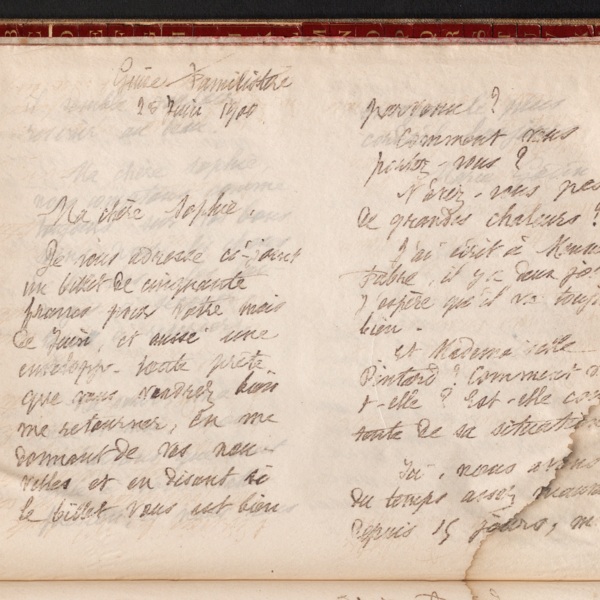 Guise Familistère
28 Juin 1900
Ma chère Sophie,
Je vous adresse ci-joint
un billet de cinquante
francs pour votre mois
de Juin, et aussi une
enveloppe toute prête
que vous voudrez bien
me retourner, en me
donnant de vos nou-
velles et en disant si
le billet vous est bien
parvenu ?
Comment vous
portez-vous ?
N'avez-vous pas
de grandes chaleurs ?
J'ai écrit à
Fabre, il y a deux
J'espère qu'il va
bien.
Et Mademoiselle
Pintard ? Comment
t-elle ? Est-elle
de sa situation
Ici, nous avons
du temps assez
depuis 15 jours,